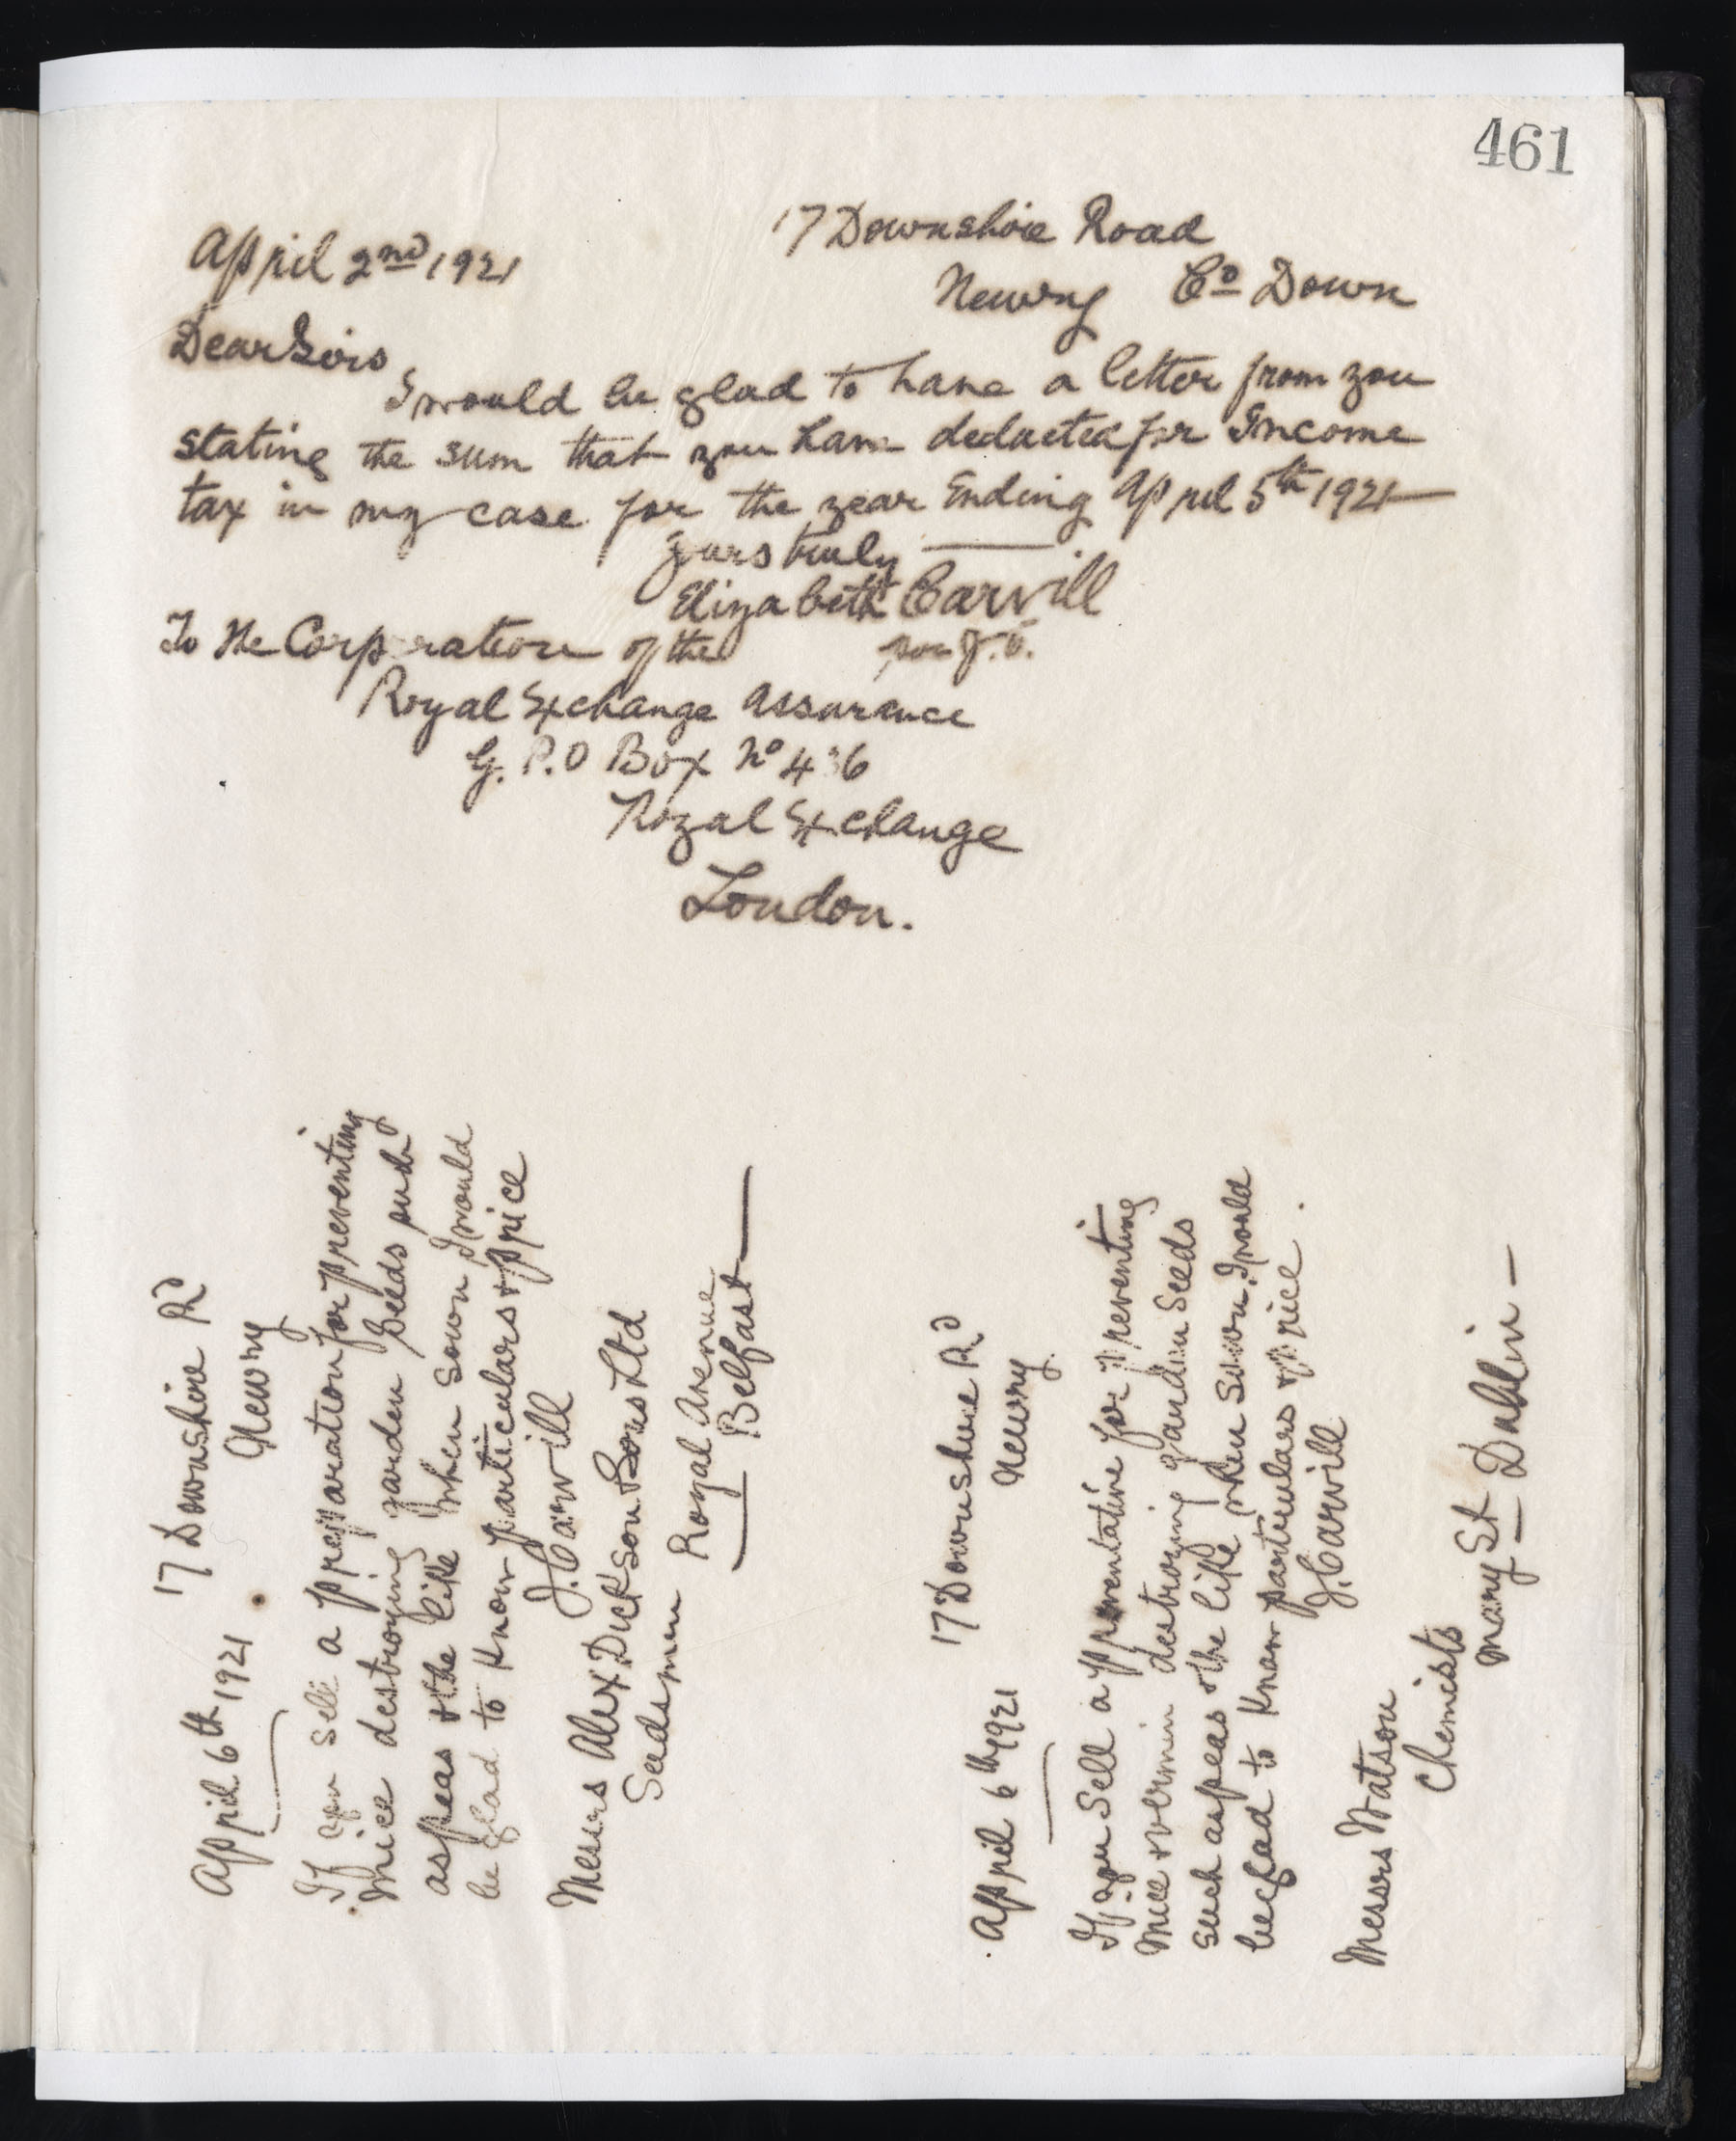 461
17 Downshire Road
April 2nd 1921
Newry Co Down
Dear Sirs
I would be glad to have a letter from you
stating the sum that you have deducted for Income
tax in my case for the year Ending April 5th 1921
yours truly
Elizabeth Carvill
per J.C.
To the Corporation of the
Royal Exchange Assurance
G.P.O Box No 436
Royal Exchange
London.
17 Downshire Rd
April 6th 1921
Newry
If you sell a preparation for preventing
mice destroying garden seeds such
as peas & the like when sown I would
be glad to know particulars & price
J. Carvill
Messrs Alex Dickson & Sons Ltd
Seedsmen
Royal Avenue
Belfast
17 Downshire Rd
April 6th 1921
Newry.
If you sell a preventative for preventing
mice & vermin destroying garden seeds
such as peas & the like when sown. I would
be glad to know particulars & price.
J. Carvill
Messrs Watson
Chemists
Mary St
Dublin